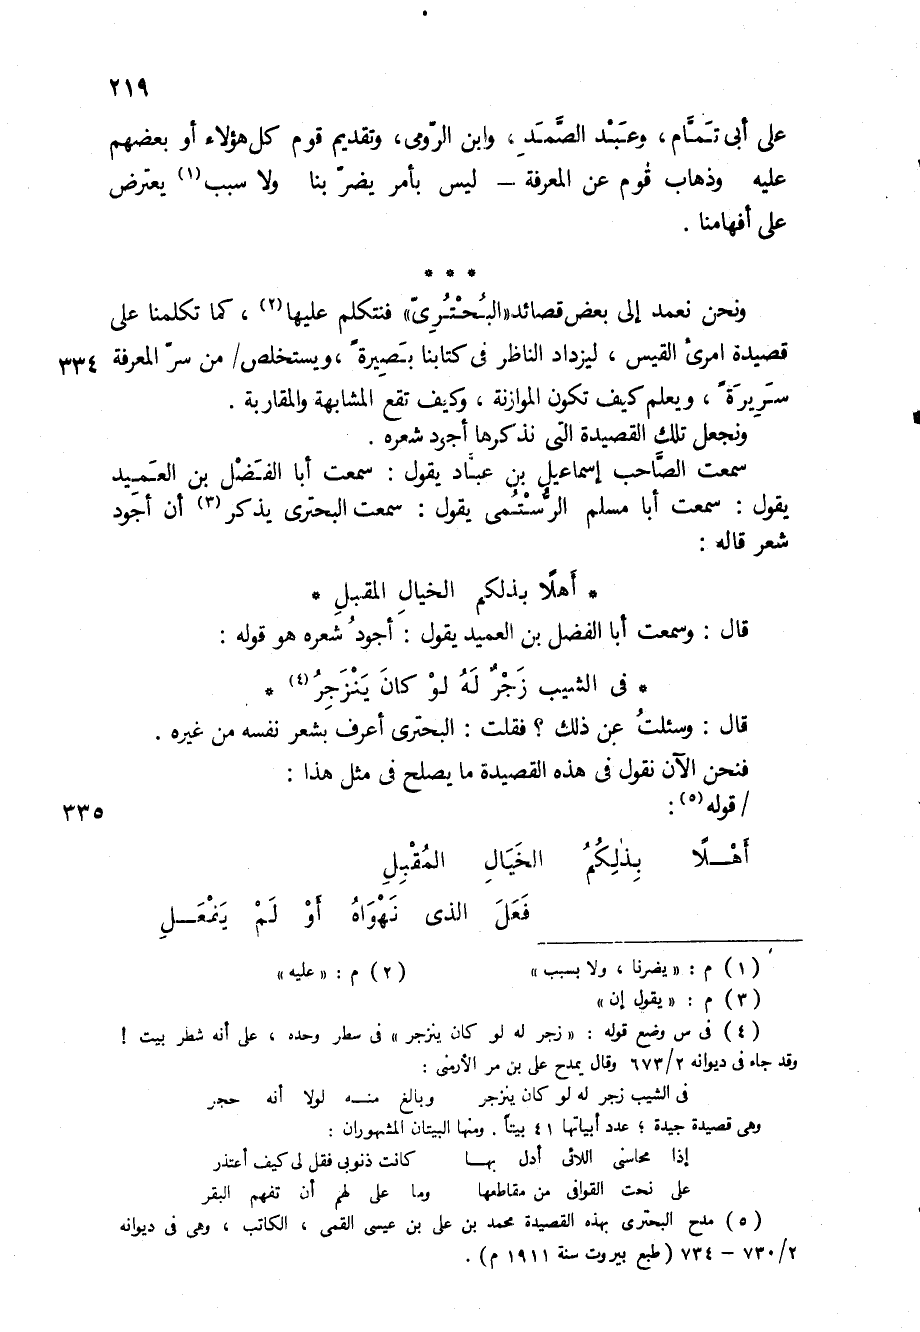 ٢١٩
على أبى تَمَّام، وعَبْد الصَّمَدِ، وابن الرّومى، وتقديم قوم كل هؤلاء أو بعضهم
عليه وذهاب قوم عن المعرفة – ليس بأمر يضرّ بنا ولا سبب(١) يعترض
على أفهامنا .
* * *
ونحن نعمد إلى بعض قصائد «البُحْتُرِىّ» فنتكلم عليها(٢) ، كما تكلمنا على
قصيدة امرئ القيس ، ليزداد الناظر فى كتابنا بَصِيرةً ، ويستخلص/ من سرّ المعرفة ٣٣٤
سَرِيرَةً ، ويعلم كيف تكون الموازنة ، وكيف تقع المشابهة والمقاربة .
ونجعل تلك القصيدة التى نذكرها أجود شعره .
سمعت الصَّاحب إسماعيل بن عبَّاد يقول : سمعت أبا الفَضْل بن العَمِيد
يقول : سمعت أبا مسلم الرُّسْتُمى يقول : سمعت البحترى يذكر(٣) أن أجود
شعر قاله :
* أَهلًا بذلكم الخيالِ المقبلِ *
قال : وسمعت أبا الفضل بن العميد يقول : أجودُ شعره هو قوله :
* فى الشيب زَجْرٌ لَهُ لوْ كانَ يَنْزَجِرُ(٤) *
قال : وسئلتُ عن ذلك ؟ فقلت : البحترى أعرف بشعر نفسه من غيره .
فنحن الآن نقول فى هذه القصيدة ما يصلح فى مثل هذا :
/ قوله(٥) : ٣٣٥
أَهْــلًا بِذٰلِكُمُ الخَيَالِ المُقْبِلِ
فَعَلَ الذى نَهْوَاهُ أَوْ لَمْ يَفْعَــلِ
(١) م : « يضرنا ، ولا بسبب » (٢) م : « عليه »
(٣) م : « يقول إن »
(٤) فى س وضع قوله : « زجر له لو كان ينزجر » فى سطر وحده ، على أنه شطر بيت !
وقد جاء فى ديوانه ٦٧٣/٢ وقال يمدح على بن مر الأرمنى :
فى الشيب زجر له لو كان ينزجر وبالغ منــه لولا أنه حجر
وهى قصيدة جيدة ؛ عدد أبياتها ٤١ بيتاً . ومنها البيتان المشهوران :
إذا محاسنى اللاتى أدل بهــا كانت ذنوبى فقل لى كيف أعتذر
على نحت القوافى من مقاطعها وما على لهم أن تفهم البقر
(٥) مدح البحترى بهذه القصيدة محمد بن على بن عيسى القمى ، الكاتب ، وهى فى ديوانه
٧٣٠/٢ – ٧٣٤ (طبع بيروت سنة ١٩١١ م) .